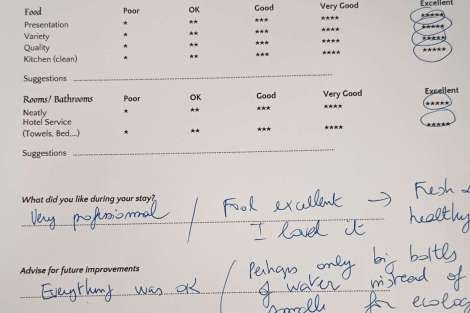 Food Poor OK Good Very Good Excellent
Presentation * ** *** **** *****
Variety * ** *** **** *****
Quality * ** *** **** *****
Kitchen (clean) * ** *** **** *****
Suggestions
Rooms/ Bathrooms Poor OK Good Very Good Excellent
Neatly * ** *** **** *****
Hotel Service
(Towels, Bed....) * ** *** **** *****
Suggestions
What did you like during your stay?
Very professionnal / Food excellent → Fresh &
I loved it healthy
Advise for future improvements
Everything was ok / Perhaps only big bottls
of water instead of
smalls for ecolog